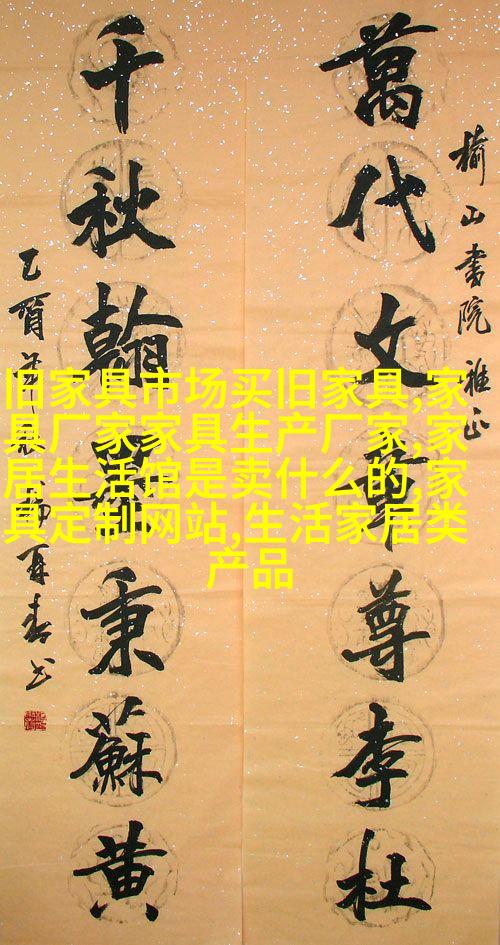 榆山書院雅正
萬代文章尊李杜
千秋翰墨秉蘇黄
旧家具市场买旧家具,家
具厂家家具生产厂家,家
居生活馆是卖什么的,家
具定制网站,生活家居类
产品